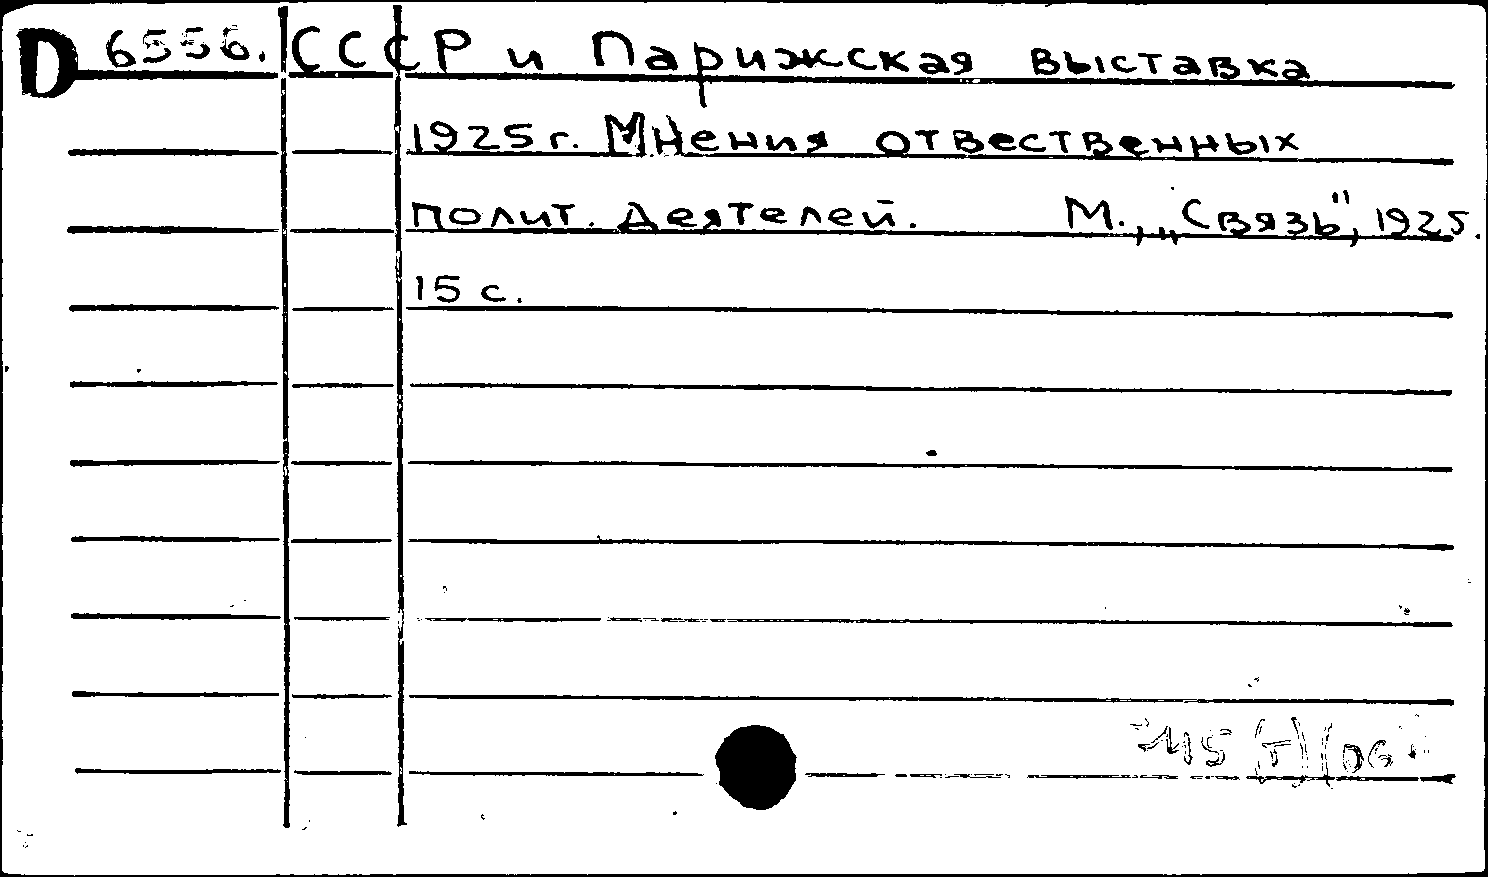 D 6556. СССР и Парижская выставка
1925 г. Мнения отвественных
полит. деятелей. М., „Связь", 1925.
15 с.